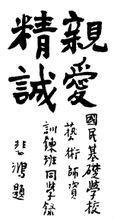 親愛
精誠
國民基礎學校
藝術師資
訓練班同學錄
悲鴻題